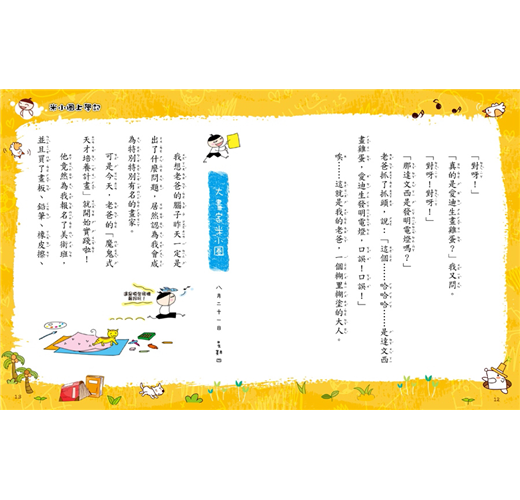 米小圈上學記
「對呀！」
「真的是愛迪生畫雞蛋？」我又問。
「對呀！對呀！」
「那達文西是發明電燈嗎？」
老爸抓了抓頭，說：「這個……哈哈哈……是達文西
畫雞蛋，愛迪生發明電燈，口誤！口誤！」
唉……這就是我的老爸，一個糊里糊塗的大人。
12
大畫家米小圈
八月二十一日
我想老爸的腦子昨天一定是
出了什麼問題，居然認為我會成
為特別特別有名的畫家。
可是今天，老爸的「魔鬼式
天才培養計畫」就開始實踐啦！
他竟然為我報名了美術班，
並且買了畫板、鉛筆、橡皮擦、
13